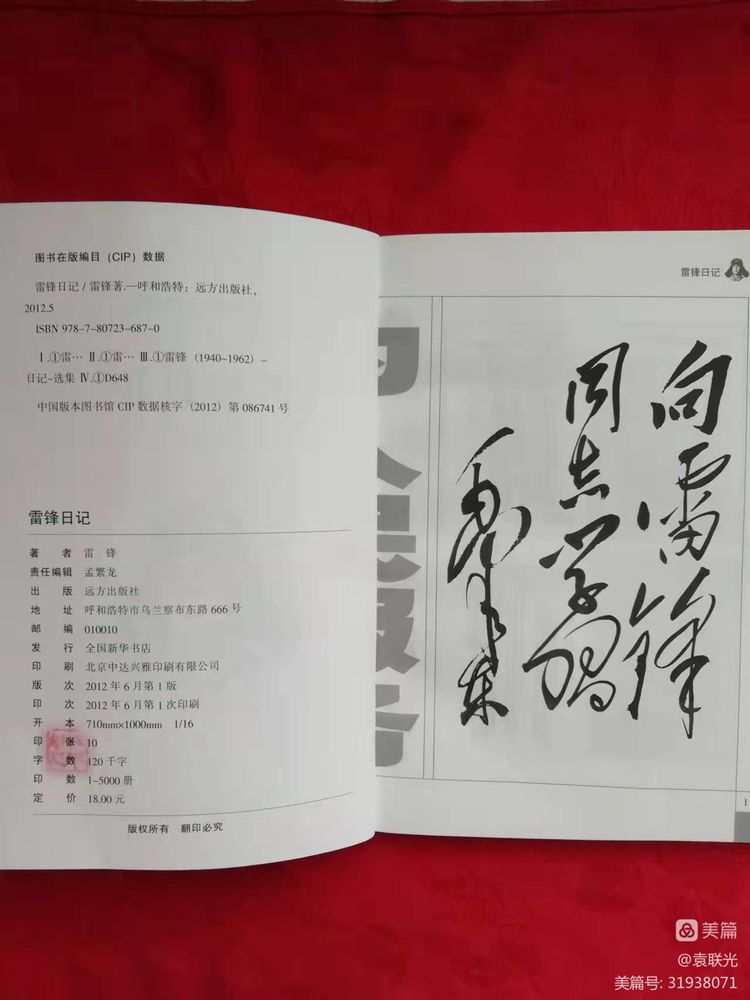 图书在版编目（CIP）数据
雷锋日记 / 雷锋著.—呼和浩特：远方出版社，
2012.5
ISBN 978-7-80723-687-0
Ⅰ.①雷… Ⅱ.①雷… Ⅲ.①雷锋（1940~1962）–
日记–选集 Ⅳ.①D648
中国版本图书馆 CIP 数据核字（2012）第 086741 号
雷锋日记
著 者 雷 锋
责任编辑 孟繁龙
出 版 远方出版社
地 址 呼和浩特市乌兰察布东路 666 号
邮 编 010010
发 行 全国新华书店
印 刷 北京中达兴雅印刷有限公司
版 次 2012 年 6 月第 1 版
印 次 2012 年 6 月第 1 次印刷
开 本 710mm×1000mm 1/16
印 张 10
字 数 120 千字
印 数 1~5000 册
定 价 18.00 元
版权所有 翻印必究
雷锋日记
向雷锋
同志学习
毛泽东
1
美篇
@袁联光
美篇号: 31938071